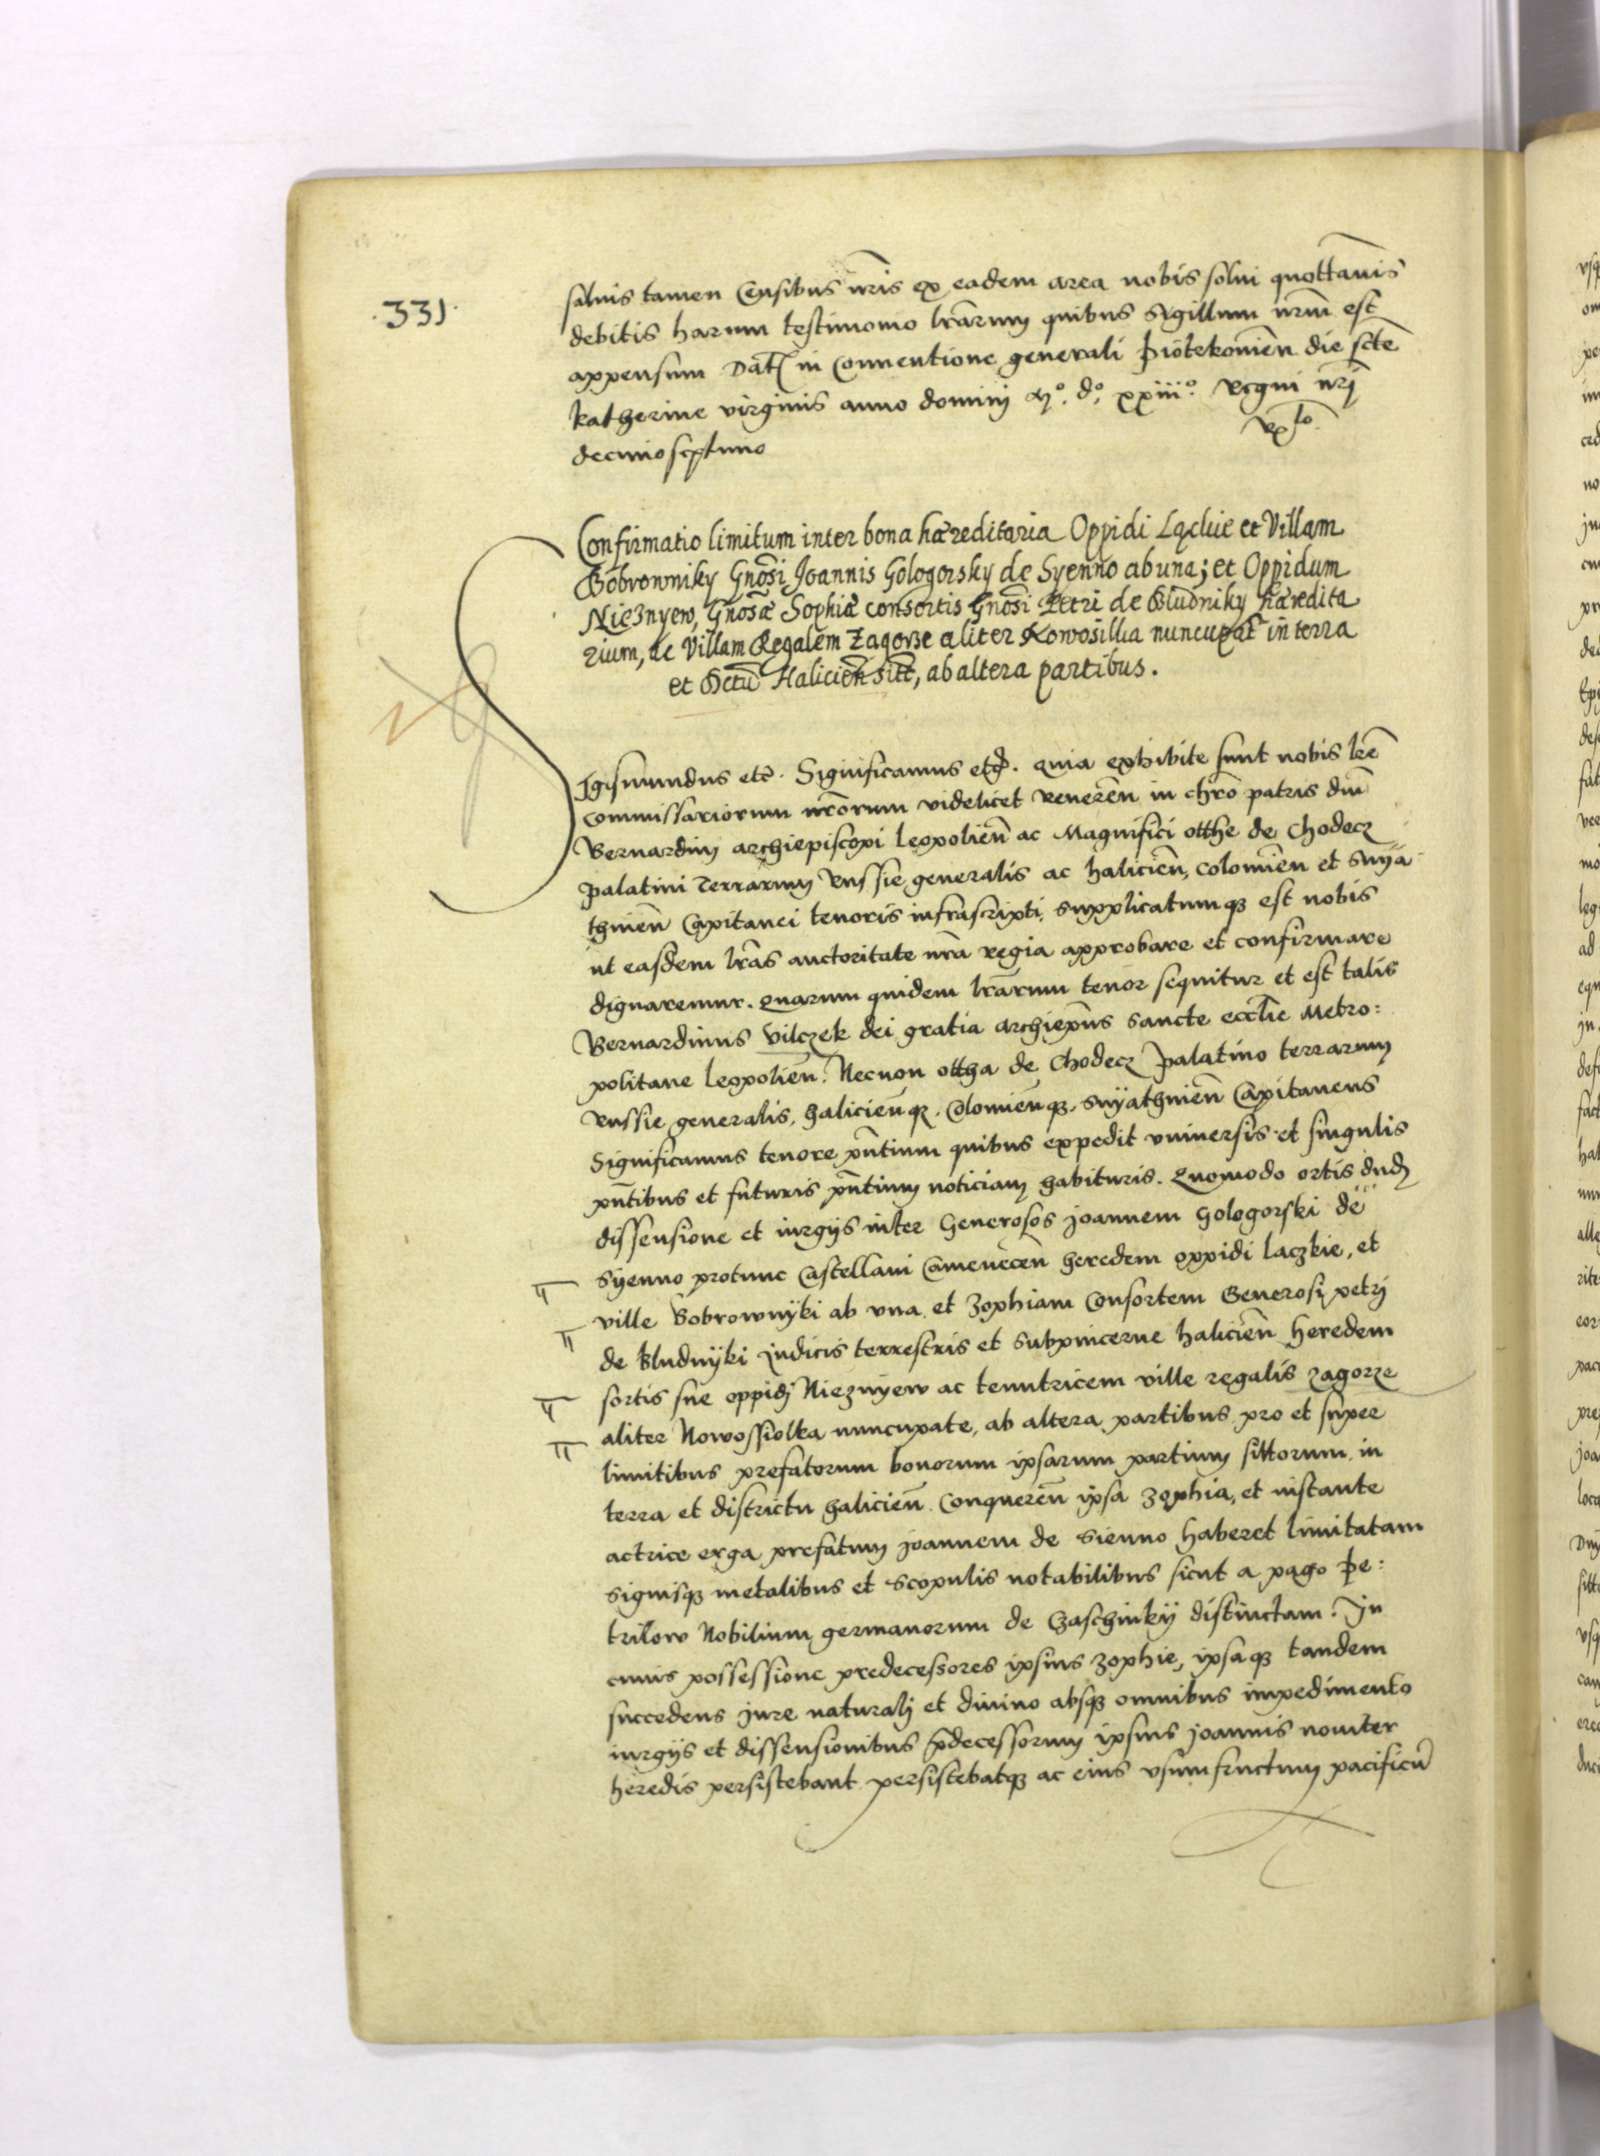 .331.
salvis tamen Censibus nr̄is ex eadem area nobis solvi quottannis
debitis harum testimonio lr̄arum quibus sigillum nr̄m est
appensum Dat̄ in Conventione generali Piotrkovien̄ die scte
katherine virginis anno domini M°. d°. xxiii°. Regni nr̄i
decimoseptimo
Rx^to
Confirmatio limitum inter bona hæreditaria Oppidi Lączkie et Villam
Bobrowniky Gnōsi Joannis Gologorsky de Syenno ab una; et Oppidum
Nieznyew, Gnōsæ Sophiæ consortis Gnōsi Petri de Bludniky hæredita
rium, ac Villam Regalem Zagorze aliter Nowosillka nuncupat̄ in terra
et Dctu Halicien̄ sitt̄, ab altera partibus.
Sigismundus etc̄. Significamus etc̄. quia exhibite sunt nobis lr̄e
commissariorum nr̄orum videlicet Reveren̄ in chr̄o patris dn̄i
Bernardini archiepiscopi leopolien̄ ac Magnifici otthe de Chodecz
palatini Terrarum Russie generalis ac halicien̄, colomien̄ et Snya
thinen̄ Capitanei tenoris infrascripti. supplicatumq; est nobis
ut easdem lr̄as auctoritate nr̄a regia approbare et confirmare
dignaremur. Quarum quidem lr̄arum tenor sequitur et est talis
Bernardinus Vilczek dei gratia archiepūs Sancte eccl̄ie Metro:
politane leopolien̄. Necnon ottha de Chodecz Palatino terrarum
Russie generalis, halicien̄q;, Colomien̄q;, Snÿathnien̄ Capitaneus
Significamus tenore pn̄tium quibus expedit universis et singulis
pn̄tibus et futuris pn̄tium noticiam habituris. Quomodo ortis dud
dissensione et iurgiis inter Generosos joannem Gologorski de
Syenno protunc Castellani Camenecen̄ heredem oppidi laczkie, et
ville Bobrownÿki ab una et Zophiam Consortem Generosi petri
de bludnÿki Judicis terrestris et Subpincerne halicien̄ heredem
sortis sue oppidi Nieznyew ac tenutricem ville regalis zagorze
aliter Nowossiolka nuncupate, ab altera partibus pro et super
limitibus prefatorum bonorum ipsarum partium sittorum in
terra et districtu halicien̄. Conqueren̄ ipsa zophia, et instante
actrice erga prefatum joannem de Sienno haberet limitatam
signisq; metalibus et Scopulis notabilibus sicut a pago Pe:
trilow Nobilium germanorum de distinctam. In
cuius possessione predecessores ipsius zophie, ipsaq; tandem
succedens jure naturali et divino absq; omnibus impedimento
iurgiis et dissensionibus p̄decessorum ipsius joannis noviter
heredis persistebant persistebatq; ac eius usumfructum pacificū